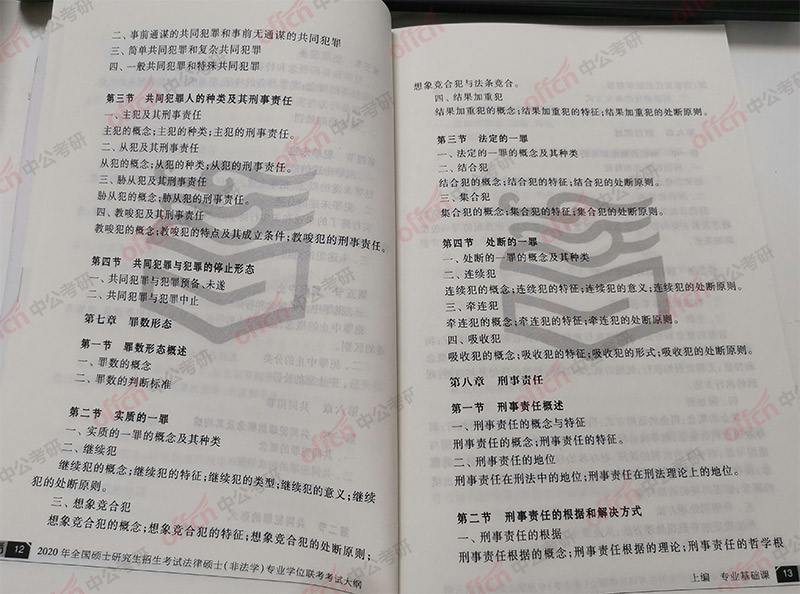 二、事前通谋的共同犯罪和事前无通谋的共同犯罪
三、简单共同犯罪和复杂共同犯罪
四、一般共同犯罪和特殊共同犯罪
第三节 共同犯罪人的种类及其刑事责任
一、主犯及其刑事责任
主犯的概念;主犯的种类;主犯的刑事责任。
二、从犯及其刑事责任
从犯的概念;从犯的种类;从犯的刑事责任。
三、胁从犯及其刑事责任
胁从犯的概念;胁从犯的刑事责任。
四、教唆犯及其刑事责任
教唆犯的概念;教唆犯的特点及其成立条件;教唆犯的刑事责任。
第四节 共同犯罪与犯罪的停止形态
一、共同犯罪与犯罪预备、未遂
二、共同犯罪与犯罪中止
第七章 罪数形态
第一节 罪数形态概述
一、罪数的概念
二、罪数的判断标准
第二节 实质的一罪
一、实质的一罪的概念及其种类
二、继续犯
继续犯的概念;继续犯的特征;继续犯的类型;继续犯的意义;继续
犯的处断原则。
三、想象竞合犯
想象竞合犯的概念;想象竞合犯的特征;想象竞合犯的处断原则;
12 2020年全国硕士研究生招生考试法律硕士(非法学)专业学位联考考试大纲
想象竞合犯与法条竞合。
四、结果加重犯
结果加重犯的概念;结果加重犯的特征;结果加重犯的处断原则。
第三节 法定的一罪
一、法定的一罪的概念及其种类
二、结合犯
结合犯的概念;结合犯的特征;结合犯的处断原则。
三、集合犯
集合犯的概念;集合犯的特征;集合犯的处断原则。
第四节 处断的一罪
一、处断的一罪的概念及其种类
二、连续犯
连续犯的概念;连续犯的特征;连续犯的意义;连续犯的处断原则。
三、牵连犯
牵连犯的概念;牵连犯的特征;牵连犯的处断原则。
四、吸收犯
吸收犯的概念;吸收犯的特征;吸收犯的形式;吸收犯的处断原则。
第八章 刑事责任
第一节 刑事责任概述
一、刑事责任的概念与特征
刑事责任的概念;刑事责任的特征。
二、刑事责任的地位
刑事责任在刑法中的地位;刑事责任在刑法理论上的地位。
第二节 刑事责任的根据和解决方式
一、刑事责任的根据
刑事责任根据的概念;刑事责任根据的理论;刑事责任的哲学根
上编 专业基础课 13
offcn 中公考研